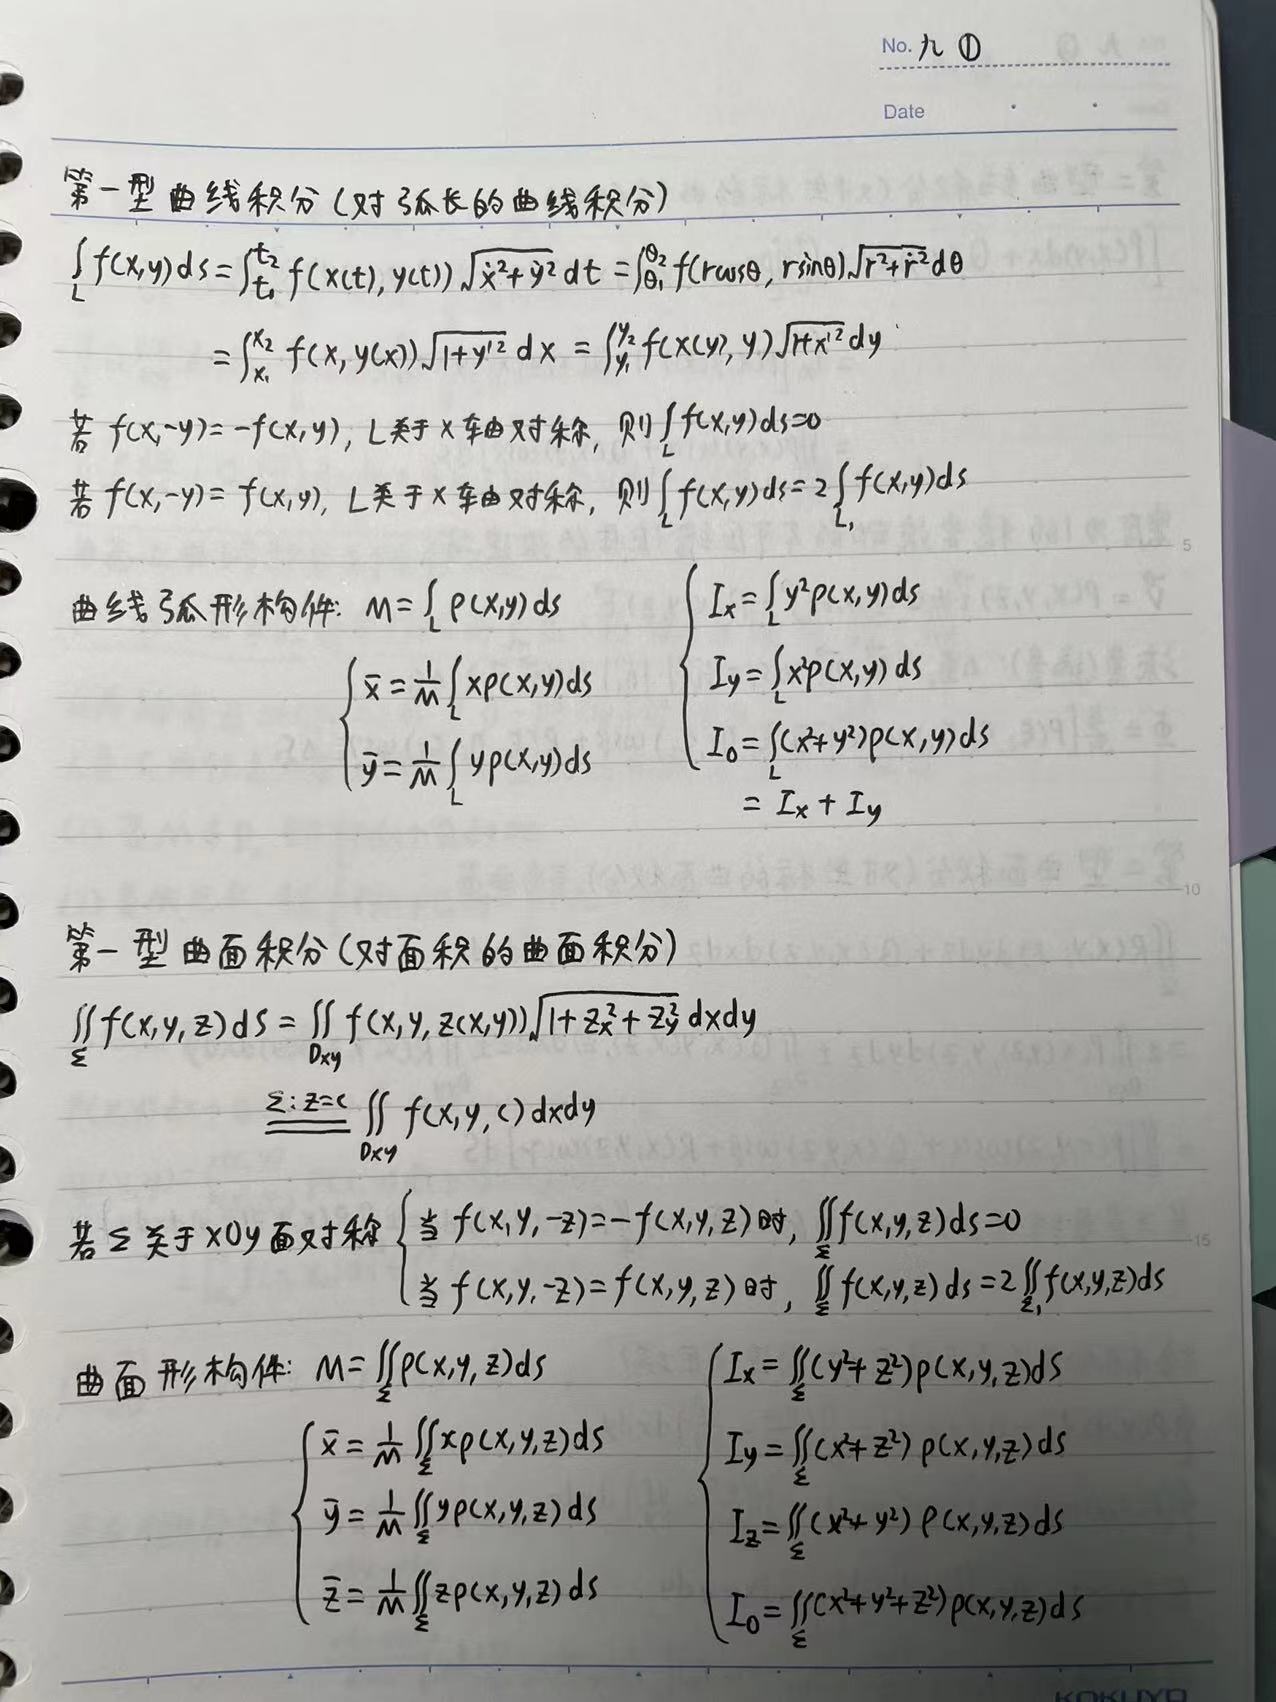 No. 九 ①
Date
第一型曲线积分(对弧长的曲线积分)
∫_L f(x,y)ds = ∫_{t₁}^{t₂} f(x(t), y(t))√(ẋ²+ẏ²) dt = ∫_{θ₁}^{θ₂} f(rcosθ, rsinθ)√(r²+ṙ²) dθ
= ∫_{x₁}^{x₂} f(x, y(x))√(1+y'²) dx = ∫_{y₁}^{y₂} f(x(y), y)√(1+x'²) dy
若 f(x,-y)=-f(x,y), L关于x轴对称, 则∫_L f(x,y)ds=0
若 f(x,-y)=f(x,y), L关于x轴对称, 则∫_L f(x,y)ds=2∫_{L₁} f(x,y)ds
5
曲线弧形构件: M=∫_L ρ(x,y)ds
x̄=1/M ∫_L xρ(x,y)ds
ȳ=1/M ∫_L yρ(x,y)ds
I_x=∫_L y²ρ(x,y)ds
I_y=∫_L x²ρ(x,y)ds
I_0=∫_L (x²+y²)ρ(x,y)ds
= I_x + I_y
10
第一型曲面积分(对面积的曲面积分)
∬_Σ f(x,y,z)dS = ∬_{Dxy} f(x,y,z(x,y))√(1+z_x²+z_y²) dxdy
Σ:z=c ∬_{Dxy} f(x,y,c)dxdy
若Σ关于xOy面对称
当 f(x,y,-z)=-f(x,y,z)时, ∬_Σ f(x,y,z)ds=0
当 f(x,y,-z)=f(x,y,z)时, ∬_Σ f(x,y,z)ds=2∬_{Σ₁} f(x,y,z)ds
15
曲面形构件: M=∬_Σ ρ(x,y,z)ds
x̄=1/M ∬_Σ xρ(x,y,z)ds
ȳ=1/M ∬_Σ yρ(x,y,z)ds
z̄=1/M ∬_Σ zρ(x,y,z)ds
I_x=∬_Σ (y²+z²)ρ(x,y,z)ds
I_y=∬_Σ (x²+z²)ρ(x,y,z)ds
I_z=∬_Σ (x²+y²)ρ(x,y,z)ds
I_0=∬_Σ (x²+y²+z²)ρ(x,y,z)ds
KOKUYO